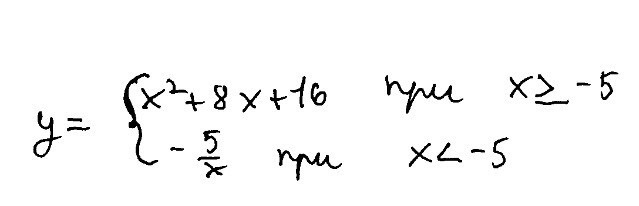 y = { x²+8x+16 при x ≥ -5
- 5/x при x < -5